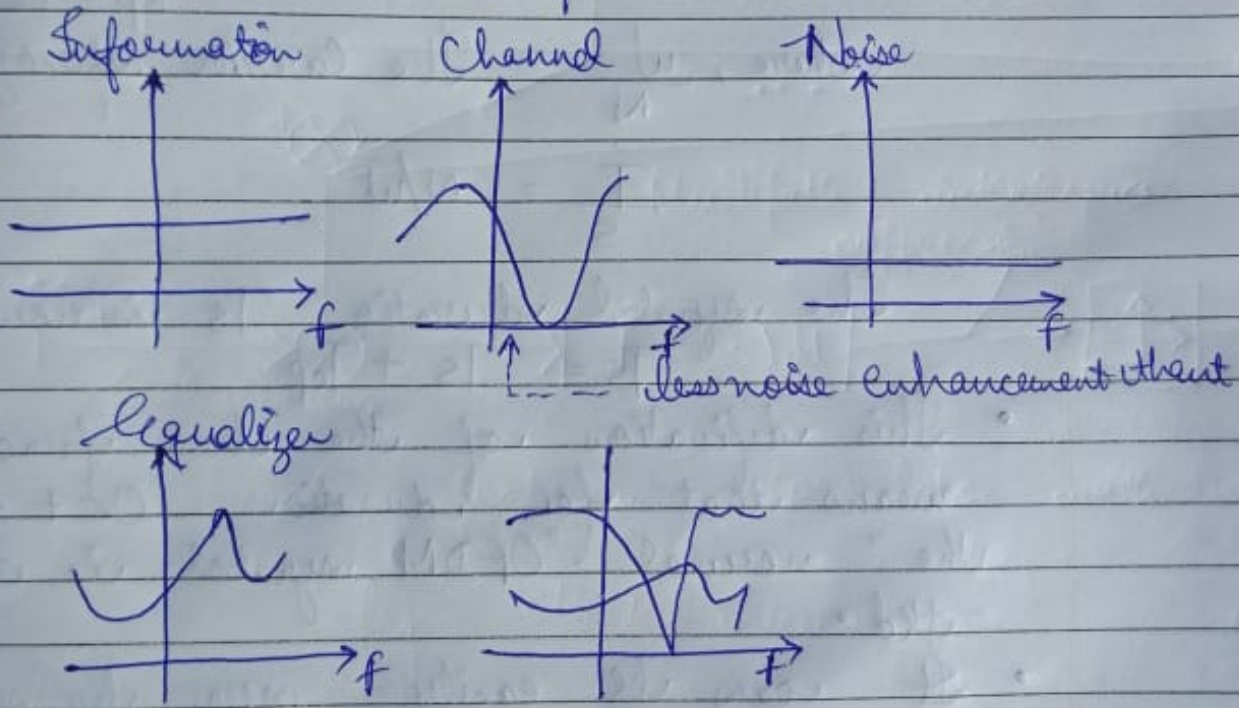 Information Channel Noise
f f f
less noise enhancement
Equalizer
f f